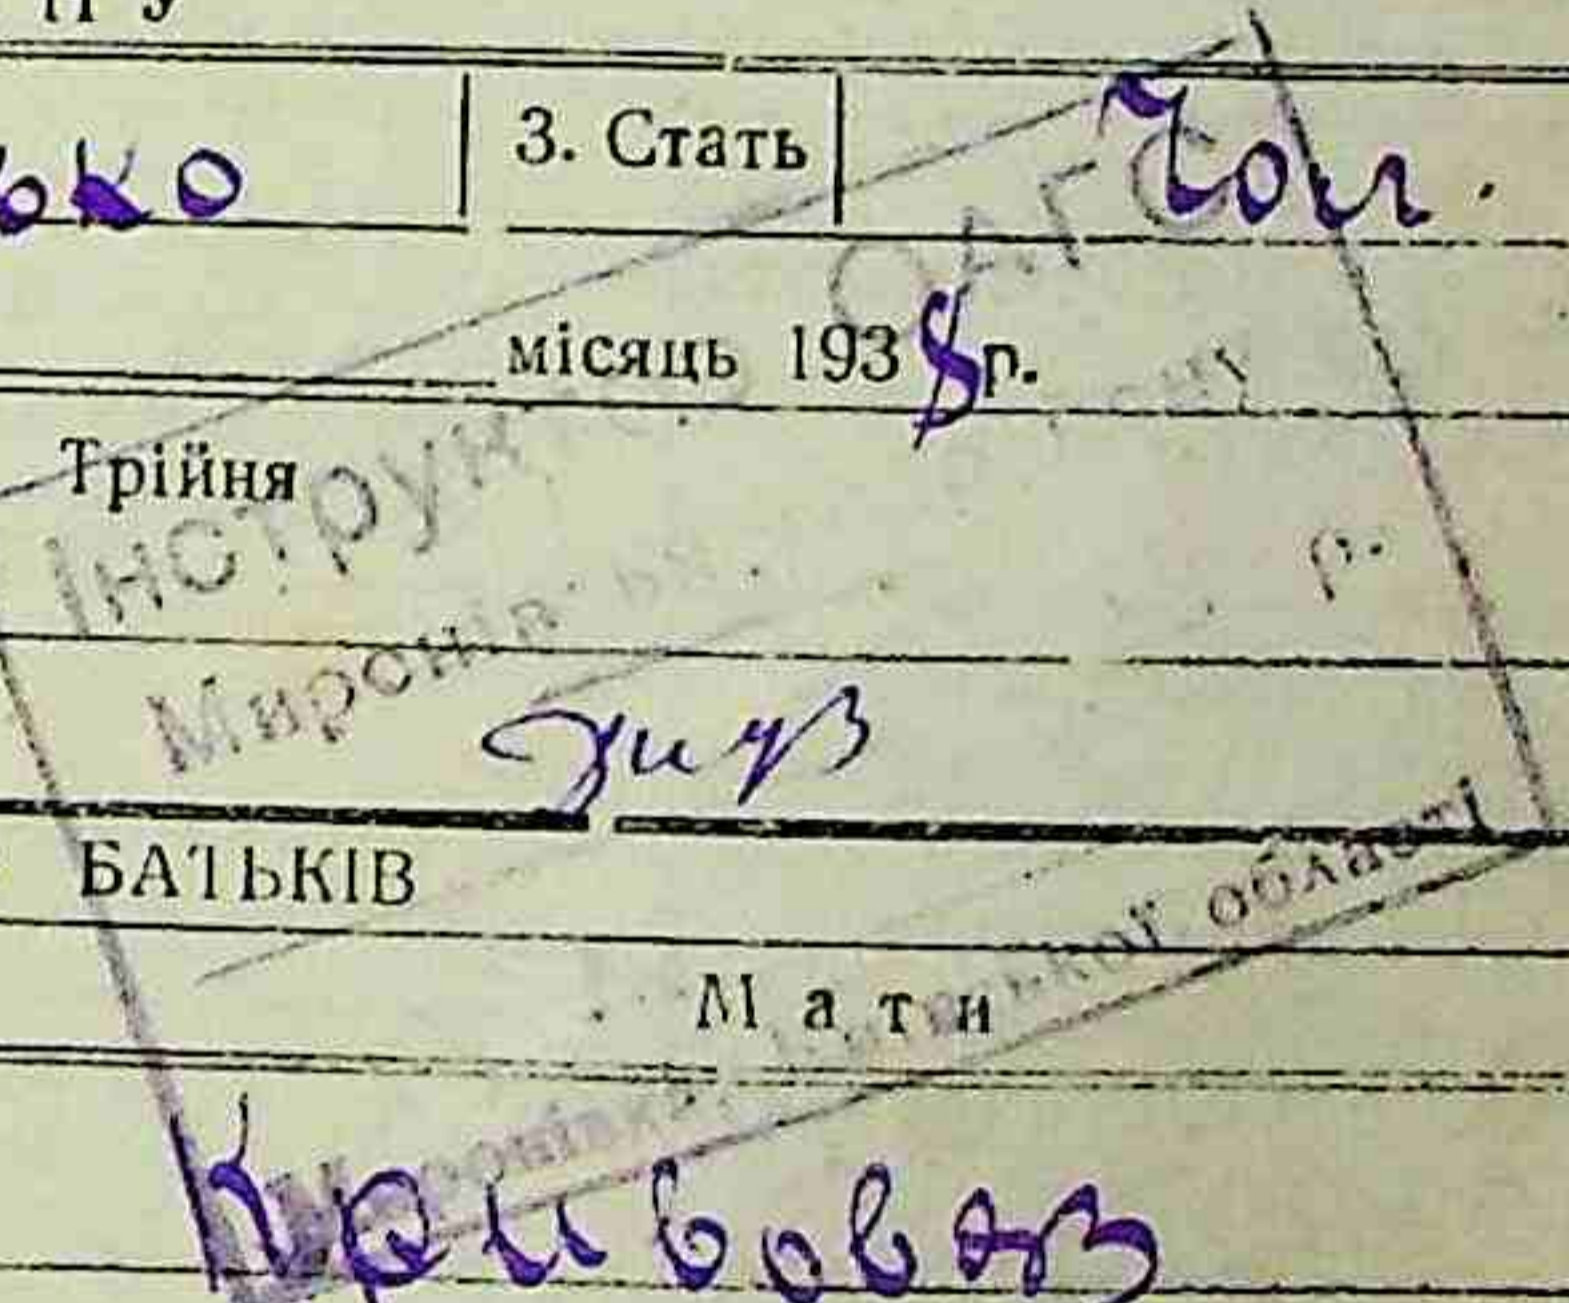 ько 3. Стать Чол.
ЗАГС
місяць 1938 р.
Трійня
Інструк
р.
Миронів
БАТЬКІВ
області
Мати
Кривовяз